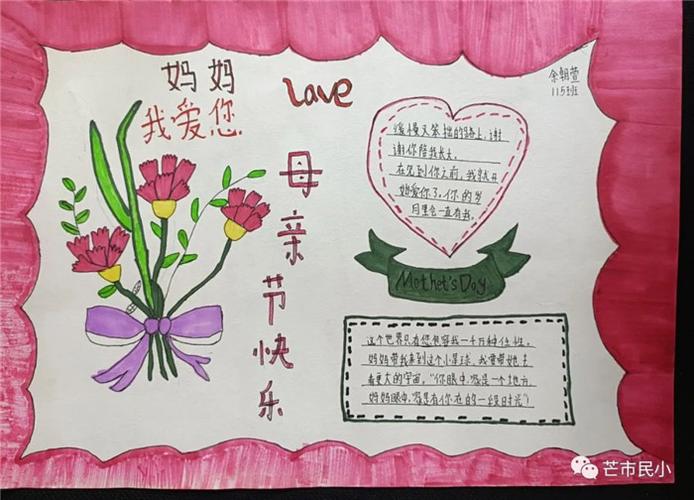 妈妈
我爱您
Lave
余朝萱
115班
母亲节快乐
缓慢又笨拙的路上,谢
谢你陪我长大。
在见到你之前,我就开
始爱你了。你的岁
月里会一直有我。
Mothet's Day
这个世界只有您包容我一千万种任性。
妈妈带我来到这个小星球,我要带她去
看更大的宇宙。“你眼中,家是一个地方
妈妈眼中,家是有你在的一段时光”)
芒市民小